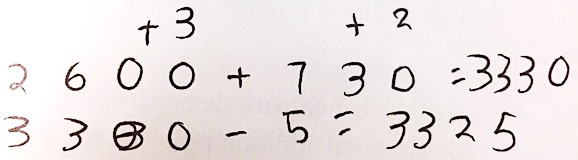 + 3 + 2
2 6 0 0 + 7 3 0 = 3330
3 3 3 0 - 5 = 3325